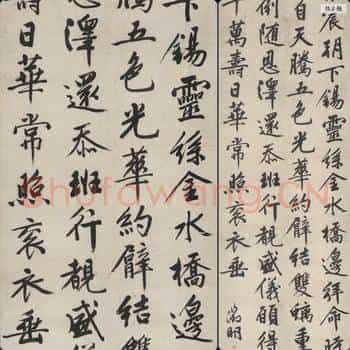 辰朝下錫靈絲金水橋邊拜命時
自天騰五色光華約臂結雙螭重
例隨恩澤還忝班行覩盛儀願得
千萬壽日華常照袞衣垂
徵明
下錫靈絲金水橋邊
騰五色光華約臂結雙
恩澤還忝班行覩盛
壽日華常照袞衣垂
shufawang.CN